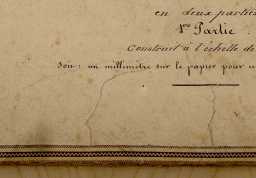 en deux parties
1ère Partie.
Construit à l'échelle de
Soit: un millimètre sur le papier pour u